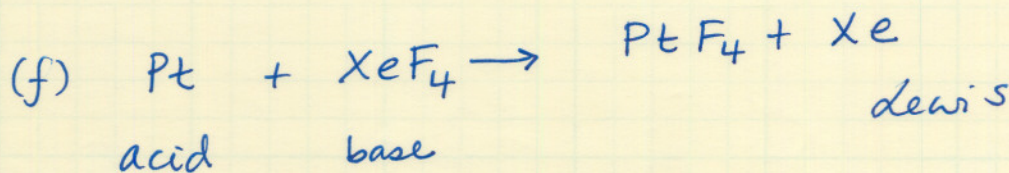 (f) Pt + XeF₄ → PtF₄ + Xe
Lewis
acid base